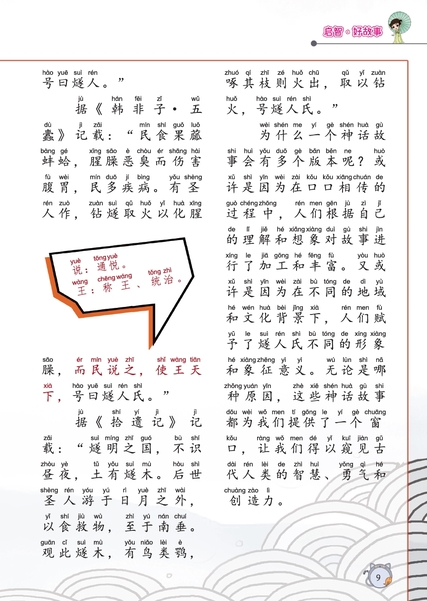 启智·好故事
hào yuē suì rén
号曰燧人。”
jù hán fēi zǐ wǔ
据《韩非子·五
dù jì zǎi mín shí guǒ luǒ
蠹》记载：“民食果蓏
bàng gé xīng sāo è chòu ér shāng hài
蚌蛤，腥臊恶臭而伤害
fù wèi mín duō jí bìng yǒu shèng
腹胃，民多疾病。有圣
rén zuò zuān suì qǔ huǒ yǐ huà xīng
人作，钻燧取火以化腥
yuè tōng yuè
说：通悦。
wàng chēng wàng tǒng zhì
王：称王、统治。
sāo ér mín yuè zhī shǐ wàng tiān
臊，而民说之，使王天
xià hào yuē suì rén shì
下，号曰燧人氏。”
jù shí yí jì jì
据《拾遗记》记
zǎi suì míng zhī guó bù shí
载：“燧明之国，不识
zhòu yè tǔ yǒu suì mù hòu shì
昼夜，土有燧木。后世
shèng rén yóu yú rì yuè zhī wài
圣人游于日月之外，
yǐ shí jiù wù zhì yú nán chuí
以食救物，至于南垂。
guān cǐ suì mù yǒu niǎo lèi è
观此燧木，有鸟类鹗，
zhuó qí zhī zé huǒ chū qǔ yǐ zuān
啄其枝则火出，取以钻
huǒ hào suì rén shì
火，号燧人氏。”
wèi shén me yí gè shén huà gù
为什么一个神话故
shì huì yǒu duō gè bǎn běn ne huò
事会有多个版本呢？或
xǔ shì yīn wèi zài kǒu kǒu xiāng chuán de
许是因为在口口相传的
guò chéng zhōng rén men gēn jù zì jǐ
过程中，人们根据自己
de lǐ jiě hé xiǎng xiàng duì gù shi jìn
的理解和想象对故事进
xíng le jiā gōng hé fēng fù yòu huò
行了加工和丰富。又或
xǔ shì yīn wèi zài bù tóng de dì yù
许是因为在不同的地域
hé wén huà bèi jǐng xià rén men fù
和文化背景下，人们赋
yǔ le suì rén shì bù tóng de xíng xiàng
予了燧人氏不同的形象
hé xiàng zhēng yì yì wú lùn shì nǎ
和象征意义。无论是哪
zhǒng yuán yīn zhè xiē shén huà gù shì
种原因，这些神话故事
dōu wèi wǒ men tí gōng le yí gè chuāng
都为我们提供了一个窗
kǒu ràng wǒ men dé yǐ kuī jiàn gǔ
口，让我们得以窥见古
dài rén lèi de zhì huì yǒng qì hé
代人类的智慧、勇气和
chuàng zào lì
创造力。
9